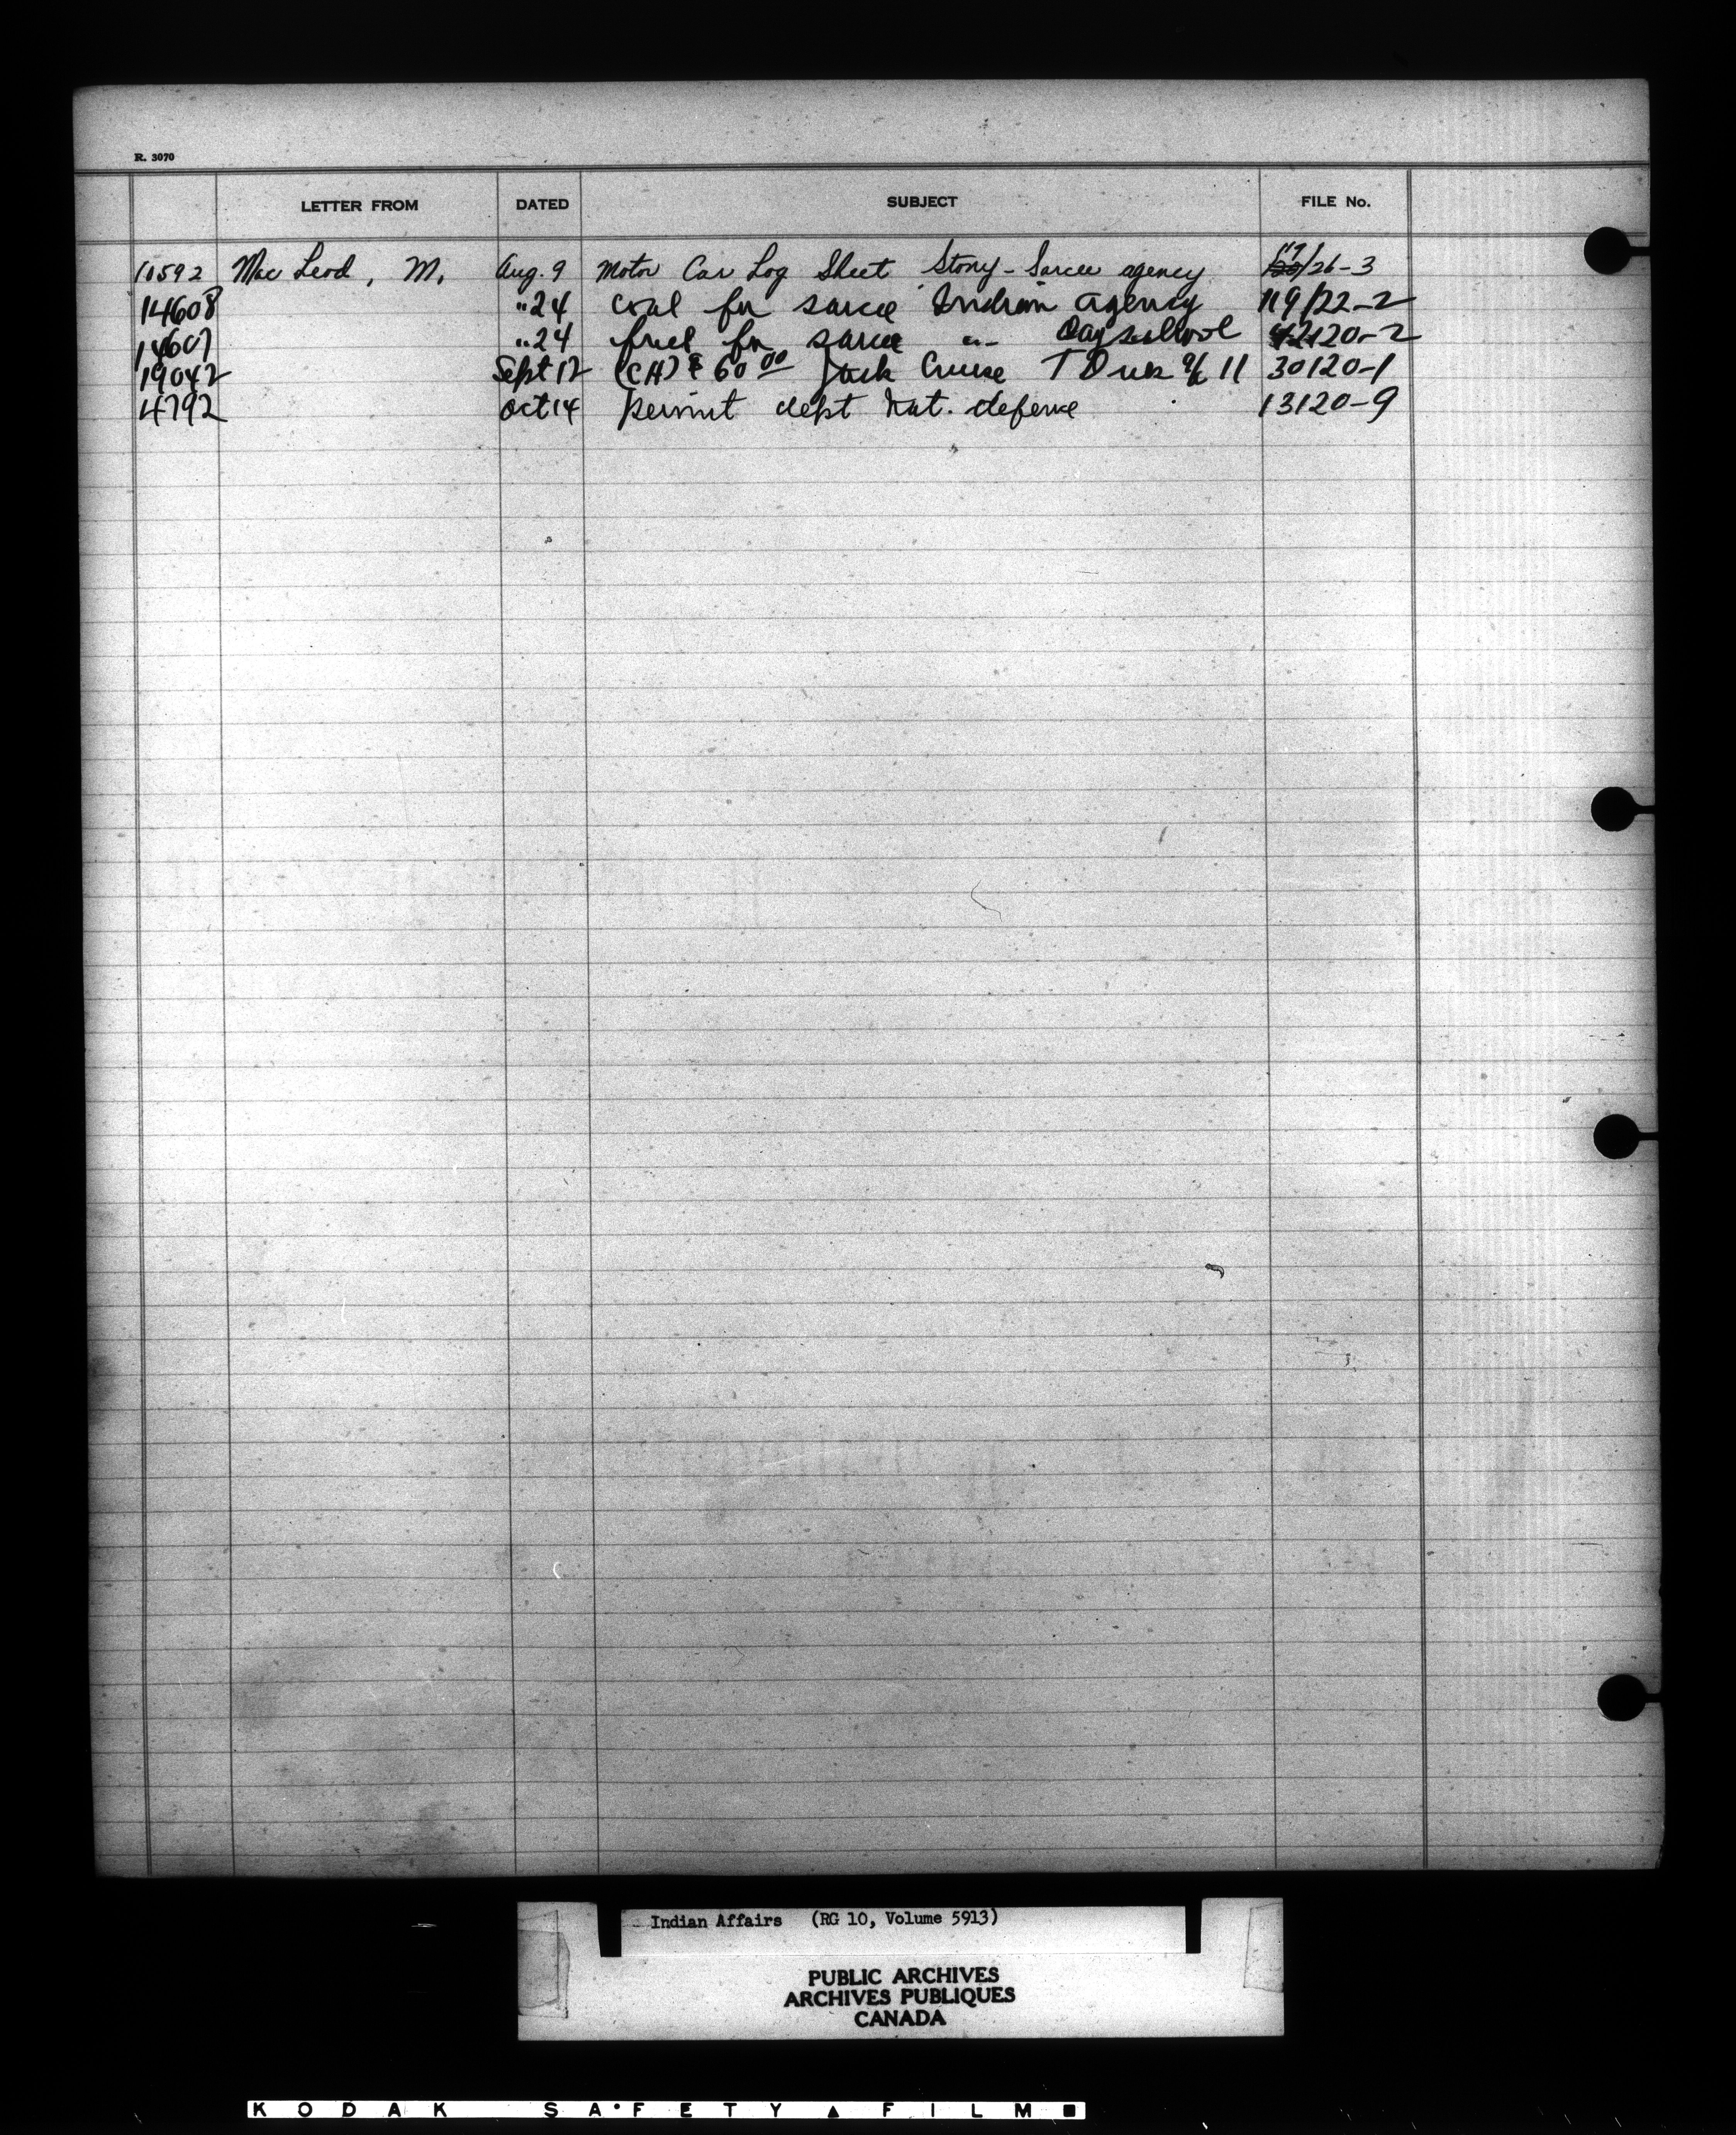 R. 3070
LETTER FROM DATED SUBJECT FILE No.
10592 Mac Leod, M. Aug. 9 Motor Car Log Sheet Stony-Sarcee agency 119/26-3
14608 " 24 coal for sarcee Indian agency 119/22-2
14607 " 24 fuel for sarcee " Dayschool 120-2
19042 Sept 12 (CH) $ 60 00 Jack Cruise T D 11 30120-1
4792 Oct 14 permit dept Nat. defence 13120-9
Indian Affairs (RG 10, Volume 5913)
PUBLIC ARCHIVES
ARCHIVES PUBLIQUES
CANADA
KODAK SAFETY FILM